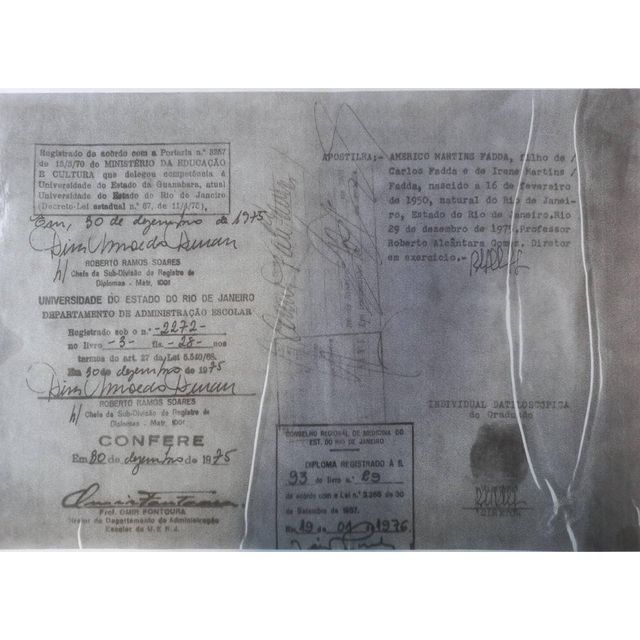 Registrado de acordo com a Portaria n.º 3257
de 15/5/70 do MINISTÉRIO DA EDUCAÇÃO
E CULTURA que delegou competência à
Universidade do Estado da Guanabara, atual
Universidade do Estado do Rio de Janeiro
(Decreto-Lei estadual n.º 67, de 11/4/75).
Em, 30 de dezembro de 1975
ROBERTO RAMOS SOARES
p/ Chefe da Sub-Divisão de Registro de
Diplomas - Matr. 1001
UNIVERSIDADE DO ESTADO DO RIO DE JANEIRO
DEPARTAMENTO DE ADMINISTRAÇÃO ESCOLAR
Registrado sob o n.º -2272-
no livro -3- fls -28- nos
termos do art. 27 da Lei 5.540/68.
Em 30 de dezembro de 1975
ROBERTO RAMOS SOARES
p/ Chefe da Sub-Divisão de Registro de
Diplomas - Matr. 1001
CONFERE
Em 30 de dezembro de 1975
Omir Fontoura
Prof. OMIR FONTOURA
Diretor do Departamento de Administração
Escolar da U.E.R.J.
APOSTILA:- AMERICO MARTINS FADDA, filho de /
Carlos Fadda e de Irene Martins /
Fadda, nascido a 16 de fevereiro
de 1950, natural do Rio de Janei-
ro, Estado do Rio de Janeiro. Rio
29 de dezembro de 1975. Professor
Roberto Alcântara Gomes. Diretor
em exercício.-
INDIVIDUAL DATILOSCÓPICA
do Graduado
CONSELHO REGIONAL DE MEDICINA DO
EST. DO RIO DE JANEIRO
DIPLOMA REGISTRADO À fl.
93 do livro n.º 29
de acordo com a Lei n.º 3.268 de 30
de Setembro de 1957.
Em 19 de 01 de 1976.